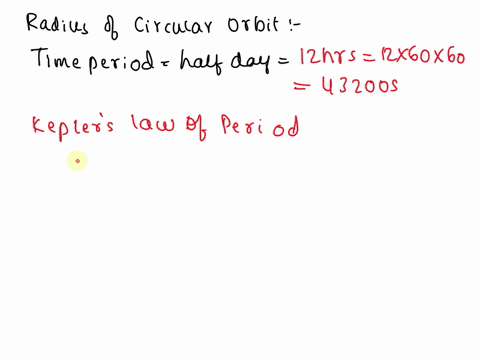 Radius of Circular Orbit :-
Time period = half day = 12hrs = 12x60x60
= 43200s
Kepler's law of Period